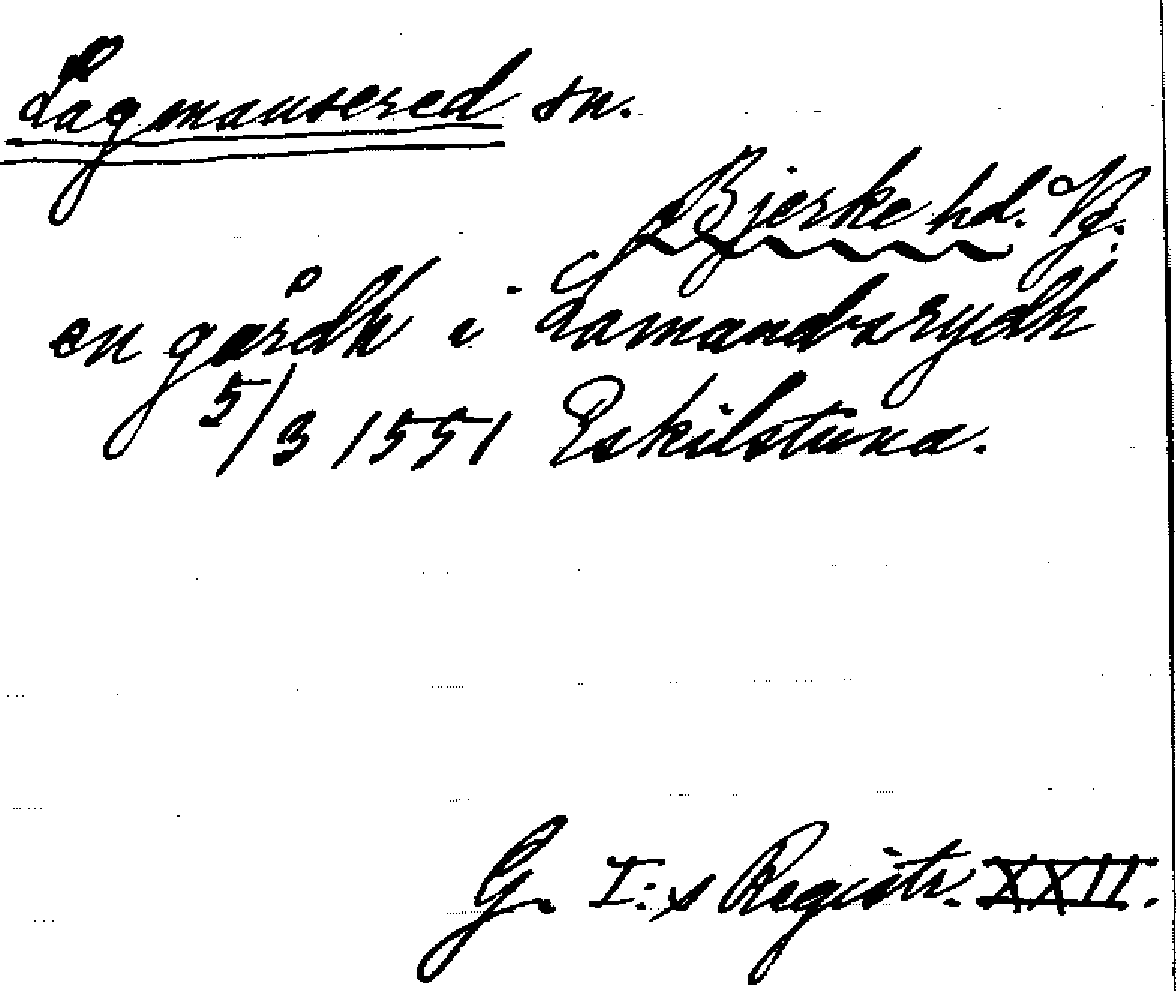 Lagmansered sn.
Bjerke hd. Vg.
en gårdh i Lamandzrydh
5/3 1551 Eskilstuna.
G. I:s Registr. XXII.